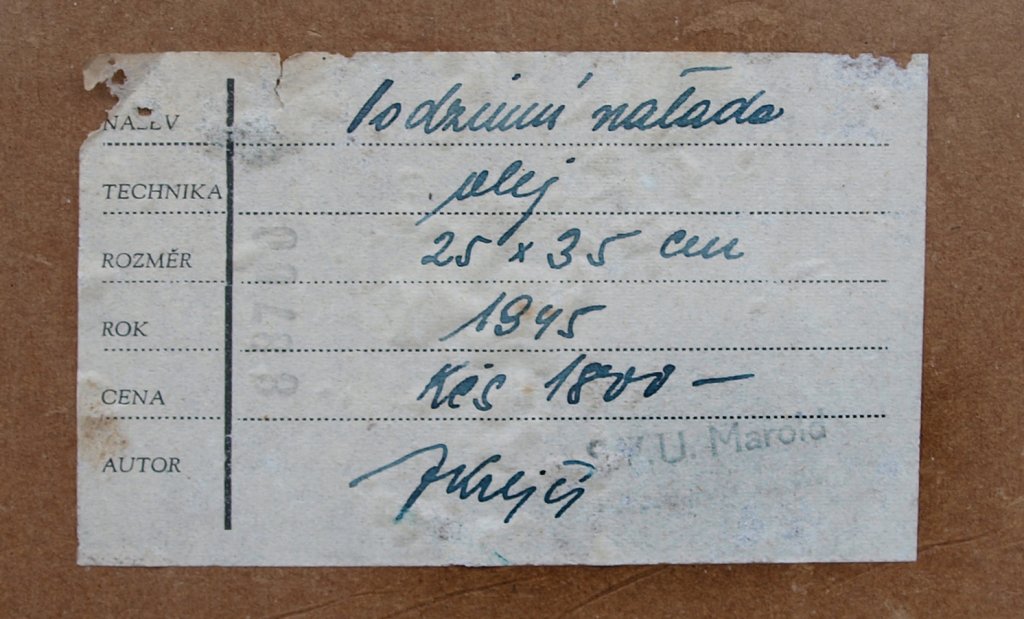 NÁZEV Podzimní nálada
TECHNIKA olej
ROZMĚR 25 x 35 cm
ROK 1945
CENA Kčs 1800 —
AUTOR JKrejčí
S.V.U. Marold